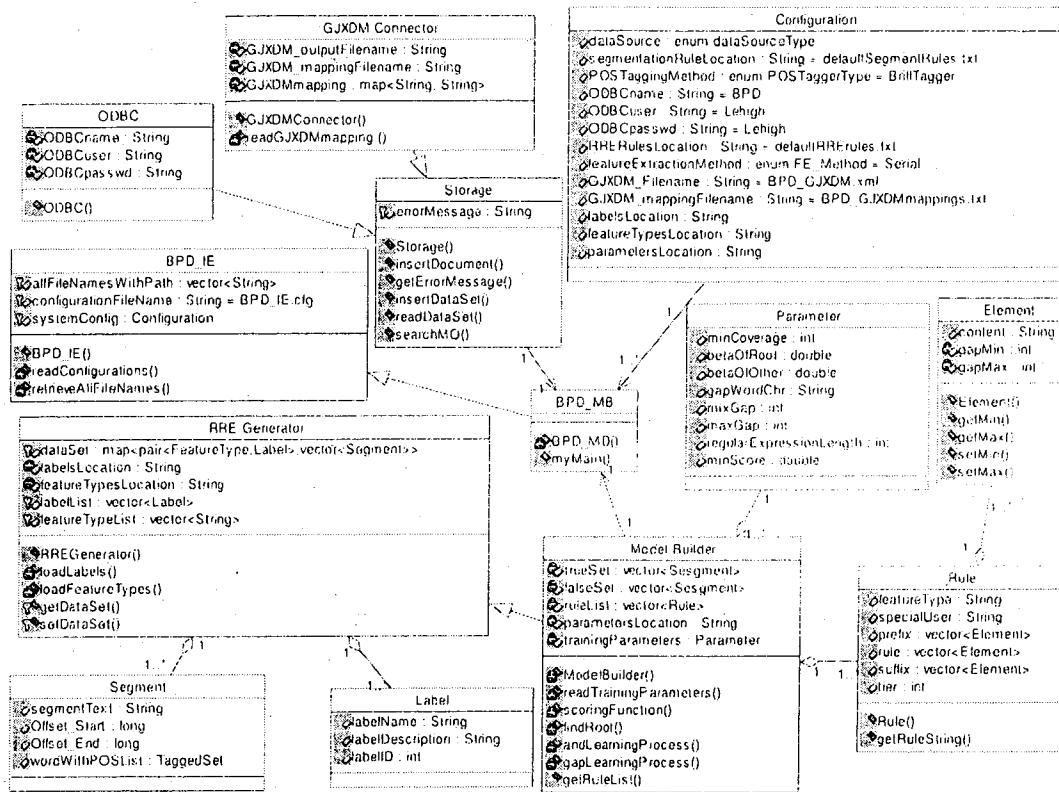 GJXDM Connector
GJXDM_outputFilename : String
GJXDM_mappingFilename : String
GJXDMmapping : map<String, String>
GJXDMConnector()
readGJXDMmapping ()
Configuration
dataSource : enum dataSourceType
segmentationRuleLocation : String = defaultSegmentRules.txt
POSTaggingMethod : enum POSTaggerType = BrillTagger
ODBCname : String = BPD
ODBCuser : String = Lehigh
ODBCpasswd : String = Lehigh
RRERulesLocation : String = defaultRRErules.txt
featureExtractionMethod : enum FE_Method = Serial
GJXDM_Filename : String = BPD_GJXDM.xml
GJXDM_mappingFilename : String = BPD_GJXDMmappings.txt
labelsLocation : String
featureTypesLocation : String
parametersLocation : String
ODBC
ODBCname : String
ODBCuser : String
ODBCpasswd : String
ODBC()
Storage
errorMessage : String
Storage()
insertDocument()
getErrorMessage()
insertDataSet()
readDataSet()
searchMO()
BPD_IE
allFileNamesWithPath : vector<String>
configurationFileName : String = BPD_IE.cfg
systemConfig : Configuration
BPD_IE()
readConfigurations()
retrieveAllFileNames()
1
1
1
1..*
BPD_MB
BPD_MB()
myMain()
1
1
Parameter
minCoverage : int
betaOfRoot : double
betaOfOther : double
gapWordChr : String
mixGap : int
maxGap : int
regularExpressionLength : int
minScore : double
Element
content : String
gapMin : int
gapMax : int
Element()
getMin()
getMax()
setMin()
setMax()
RRE Generator
dataSet : map<pair<FeatureType,Label>,vector<Segment>>
labelsLocation : String
featureTypesLocation : String
labelList : vector<Label>
featureTypeList : vector<String>
RREGenerator()
loadLabels()
loadFeatureTypes()
getDataSet()
setDataSet()
1
1..*
1
1..*
Segment
segmentText : String
Offset_Start : long
Offset_End : long
wordWithPOSList : TaggedSet
Label
labelName : String
labelDescription : String
labelID : int
Model Builder
trueSet : vector<Sesgment>
falseSet : vector<Sesgment>
ruleList : vector<Rule>
parametersLocation : String
trainingParameters : Parameter
ModelBuilder()
readTrainingParameters()
scoringFunction()
findRoot()
andLearningProcess()
gapLearningProcess()
getRuleList()
1
1..*
Rule
featureType : String
specialUser : String
prefix : vector<Element>
rule : vector<Element>
suffix : vector<Element>
tier : int
Rule()
getRuleString()